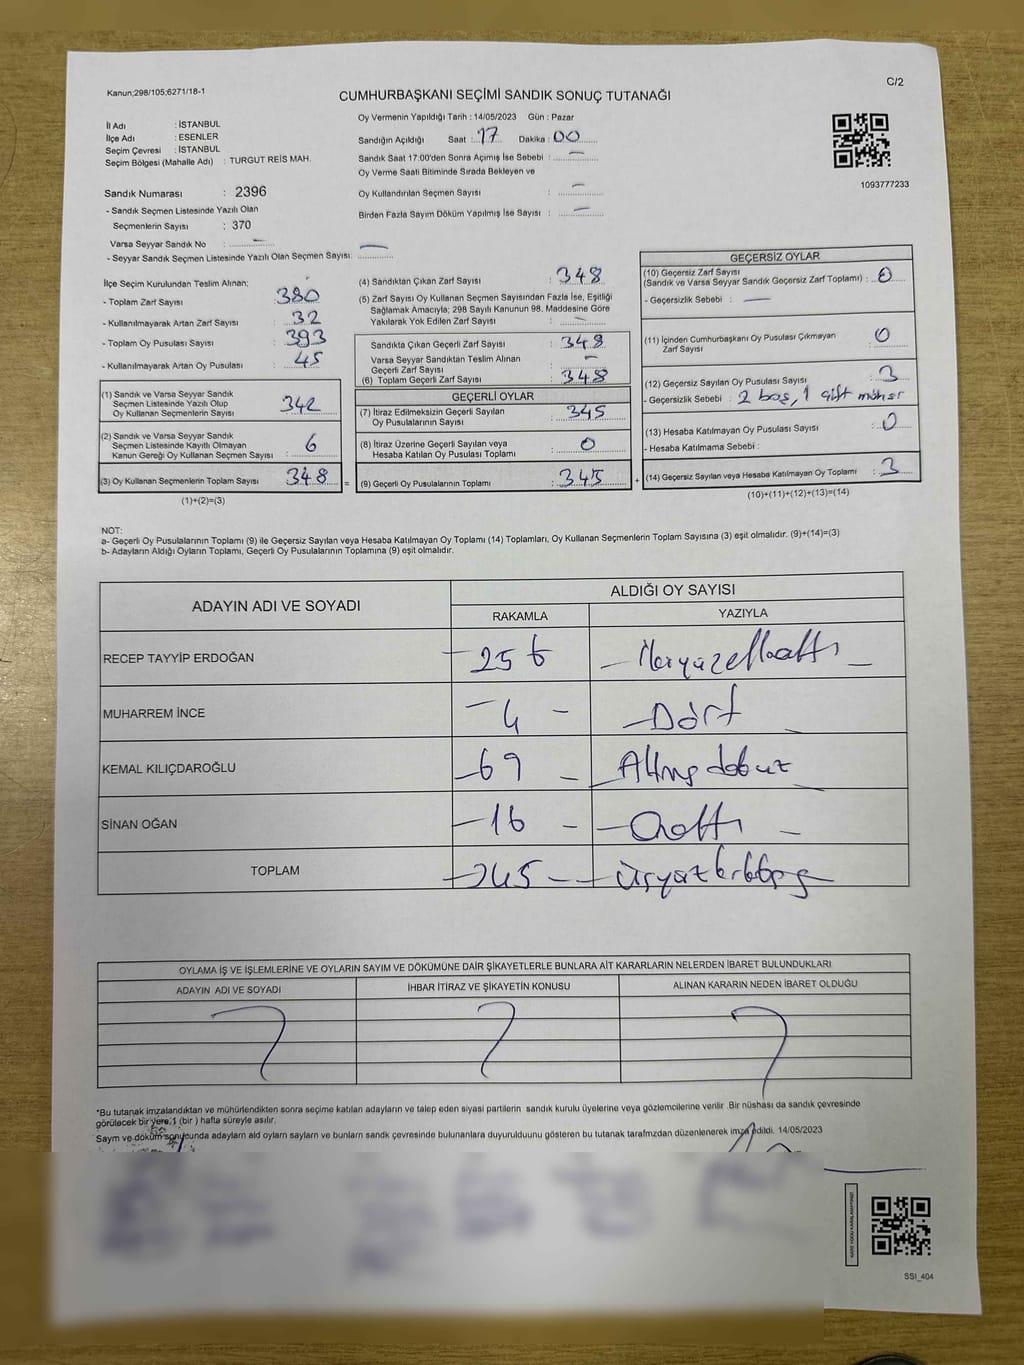 Kanun;298/105;6271/18-1
C/2
CUMHURBAŞKANI SEÇİMİ SANDIK SONUÇ TUTANAĞI
İl Adı : İSTANBUL
İlçe Adı : ESENLER
Seçim Çevresi : İSTANBUL
Seçim Bölgesi (Mahalle Adı) : TURGUT REİS MAH.
Sandık Numarası : 2396
- Sandık Seçmen Listesinde Yazılı Olan
Seçmenlerin Sayısı : 370
Varsa Seyyar Sandık No : -
- Seyyar Sandık Seçmen Listesinde Yazılı Olan Seçmen Sayısı: -
Oy Vermenin Yapıldığı Tarih : 14/05/2023 Gün : Pazar
Sandığın Açıldığı Saat : 17 Dakika : 00
Sandık Saat 17:00'den Sonra Açımış İse Sebebi : -
Oy Verme Saati Bitiminde Sırada Bekleyen ve
Oy Kullandırılan Seçmen Sayısı : -
Birden Fazla Sayım Döküm Yapılmış İse Sayısı : -
1093777233
İlçe Seçim Kurulundan Teslim Alınan;
- Toplam Zarf Sayısı : 380
- Kullanılmayarak Artan Zarf Sayısı : 32
- Toplam Oy Pusulası Sayısı : 393
- Kullanılmayarak Artan Oy Pusulası : 45
(1) Sandık ve Varsa Seyyar Sandık
Seçmen Listesinde Yazılı Olup
Oy Kullanan Seçmenlerin Sayısı : 342
(2) Sandık ve Varsa Seyyar Sandık
Seçmen Listesinde Kayıtlı Olmayan
Kanun Gereği Oy Kullanan Seçmen Sayısı : 6
(3) Oy Kullanan Seçmenlerin Toplam Sayısı : 348
(1)+(2)=(3)
(4) Sandıktan Çıkan Zarf Sayısı : 348
(5) Zarf Sayısı Oy Kullanan Seçmen Sayısından Fazla İse, Eşitliği
Sağlamak Amacıyla; 298 Sayılı Kanunun 98. Maddesine Göre
Yakılarak Yok Edilen Zarf Sayısı : -
Sandıkta Çıkan Geçerli Zarf Sayısı : 348
Varsa Seyyar Sandıktan Teslim Alınan
Geçerli Zarf Sayısı : -
(6) Toplam Geçerli Zarf Sayısı : 348
GEÇERLİ OYLAR
(7) İtiraz Edilmeksizin Geçerli Sayılan
Oy Pusulalarının Sayısı : 345
(8) İtiraz Üzerine Geçerli Sayılan veya
Hesaba Katılan Oy Pusulası Toplamı : 0
= (9) Geçerli Oy Pusulalarının Toplamı : 345 +
GEÇERSİZ OYLAR
(10) Geçersiz Zarf Sayısı
(Sandık ve Varsa Seyyar Sandık Geçersiz Zarf Toplamı) : 0
- Geçersizlik Sebebi : -
(11) İçinden Cumhurbaşkanı Oy Pusulası Çıkmayan
Zarf Sayısı : 0
(12) Geçersiz Sayılan Oy Pusulası Sayısı : 3
- Geçersizlik Sebebi : 2 boş, 1 çift mühür
(13) Hesaba Katılmayan Oy Pusulası Sayısı : 0
- Hesaba Katılmama Sebebi :
(14) Geçersiz Sayılan veya Hesaba Katılmayan Oy Toplamı : 3
(10)+(11)+(12)+(13)=(14)
NOT:
a- Geçerli Oy Pusulalarının Toplamı (9) ile Geçersiz Sayılan veya Hesaba Katılmayan Oy Toplamı (14) Toplamları, Oy Kullanan Seçmenlerin Toplam Sayısına (3) eşit olmalıdır. (9)+(14)=(3)
b- Adayların Aldığı Oyların Toplamı, Geçerli Oy Pusulalarının Toplamına (9) eşit olmalıdır.
ADAYIN ADI VE SOYADI
ALDIĞI OY SAYISI
RAKAMLA YAZIYLA
RECEP TAYYİP ERDOĞAN - 256 - İkiyüzellialtı -
MUHARREM İNCE - 4 - - Dört -
KEMAL KILIÇDAROĞLU - 69 - - Altmışdokuz
SİNAN OĞAN - 16 - - Onaltı -
TOPLAM - 345 - - Üçyüzkırkbeş -
OYLAMA İŞ VE İŞLEMLERİNE VE OYLARIN SAYIM VE DÖKÜMÜNE DAİR ŞİKAYETLERLE BUNLARA AİT KARARLARIN NELERDEN İBARET BULUNDUKLARI
ADAYIN ADI VE SOYADI İHBAR İTİRAZ VE ŞİKAYETİN KONUSU ALINAN KARARIN NEDEN İBARET OLDUĞU
*Bu tutanak imzalandıktan ve mühürlendikten sonra seçime katılan adayların ve talep eden siyasi partilerin sandık kurulu üyelerine veya gözlemcilerine verilir .Bir nüshası da sandık çevresinde
görülecek bir yere 1 (bir ) hafta süreyle asılır.
Saym ve döküm sonucunda adayların ald oyların sayların ve bunların sandık çevresinde bulunanlara duyurulduunu gösteren bu tutanak tarafmzdan düzenlenerek imza edildi. 14/05/2023
SSI_404